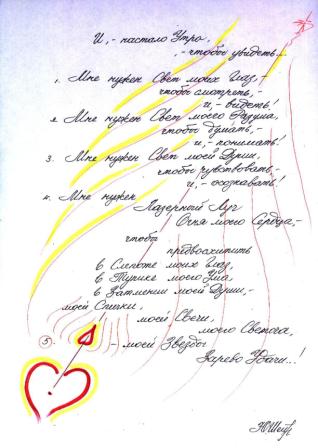 И,- настало Утро,
,- чтобы увидеть...
1. Мне нужен Свет моих Глаз,-
чтобы смотреть,-
и,- видеть!
2. Мне нужен Свет моего Разума,
чтобы думать,-
и,- понимать!
3. Мне нужен Свет моей Души,
чтобы чувствовать,-
и,- осознавать!
4. Мне нужен
Лазерный Луч
Огня моего Сердца,-
чтобы
предвосхитить
в Слепоте моих Глаз,
в Тупике моего Ума,
в Затмении моей Души,-
моей Спички,
моей Свечи,
моего Светоча,
5 -моей Звезды
Зарево Удачи...!